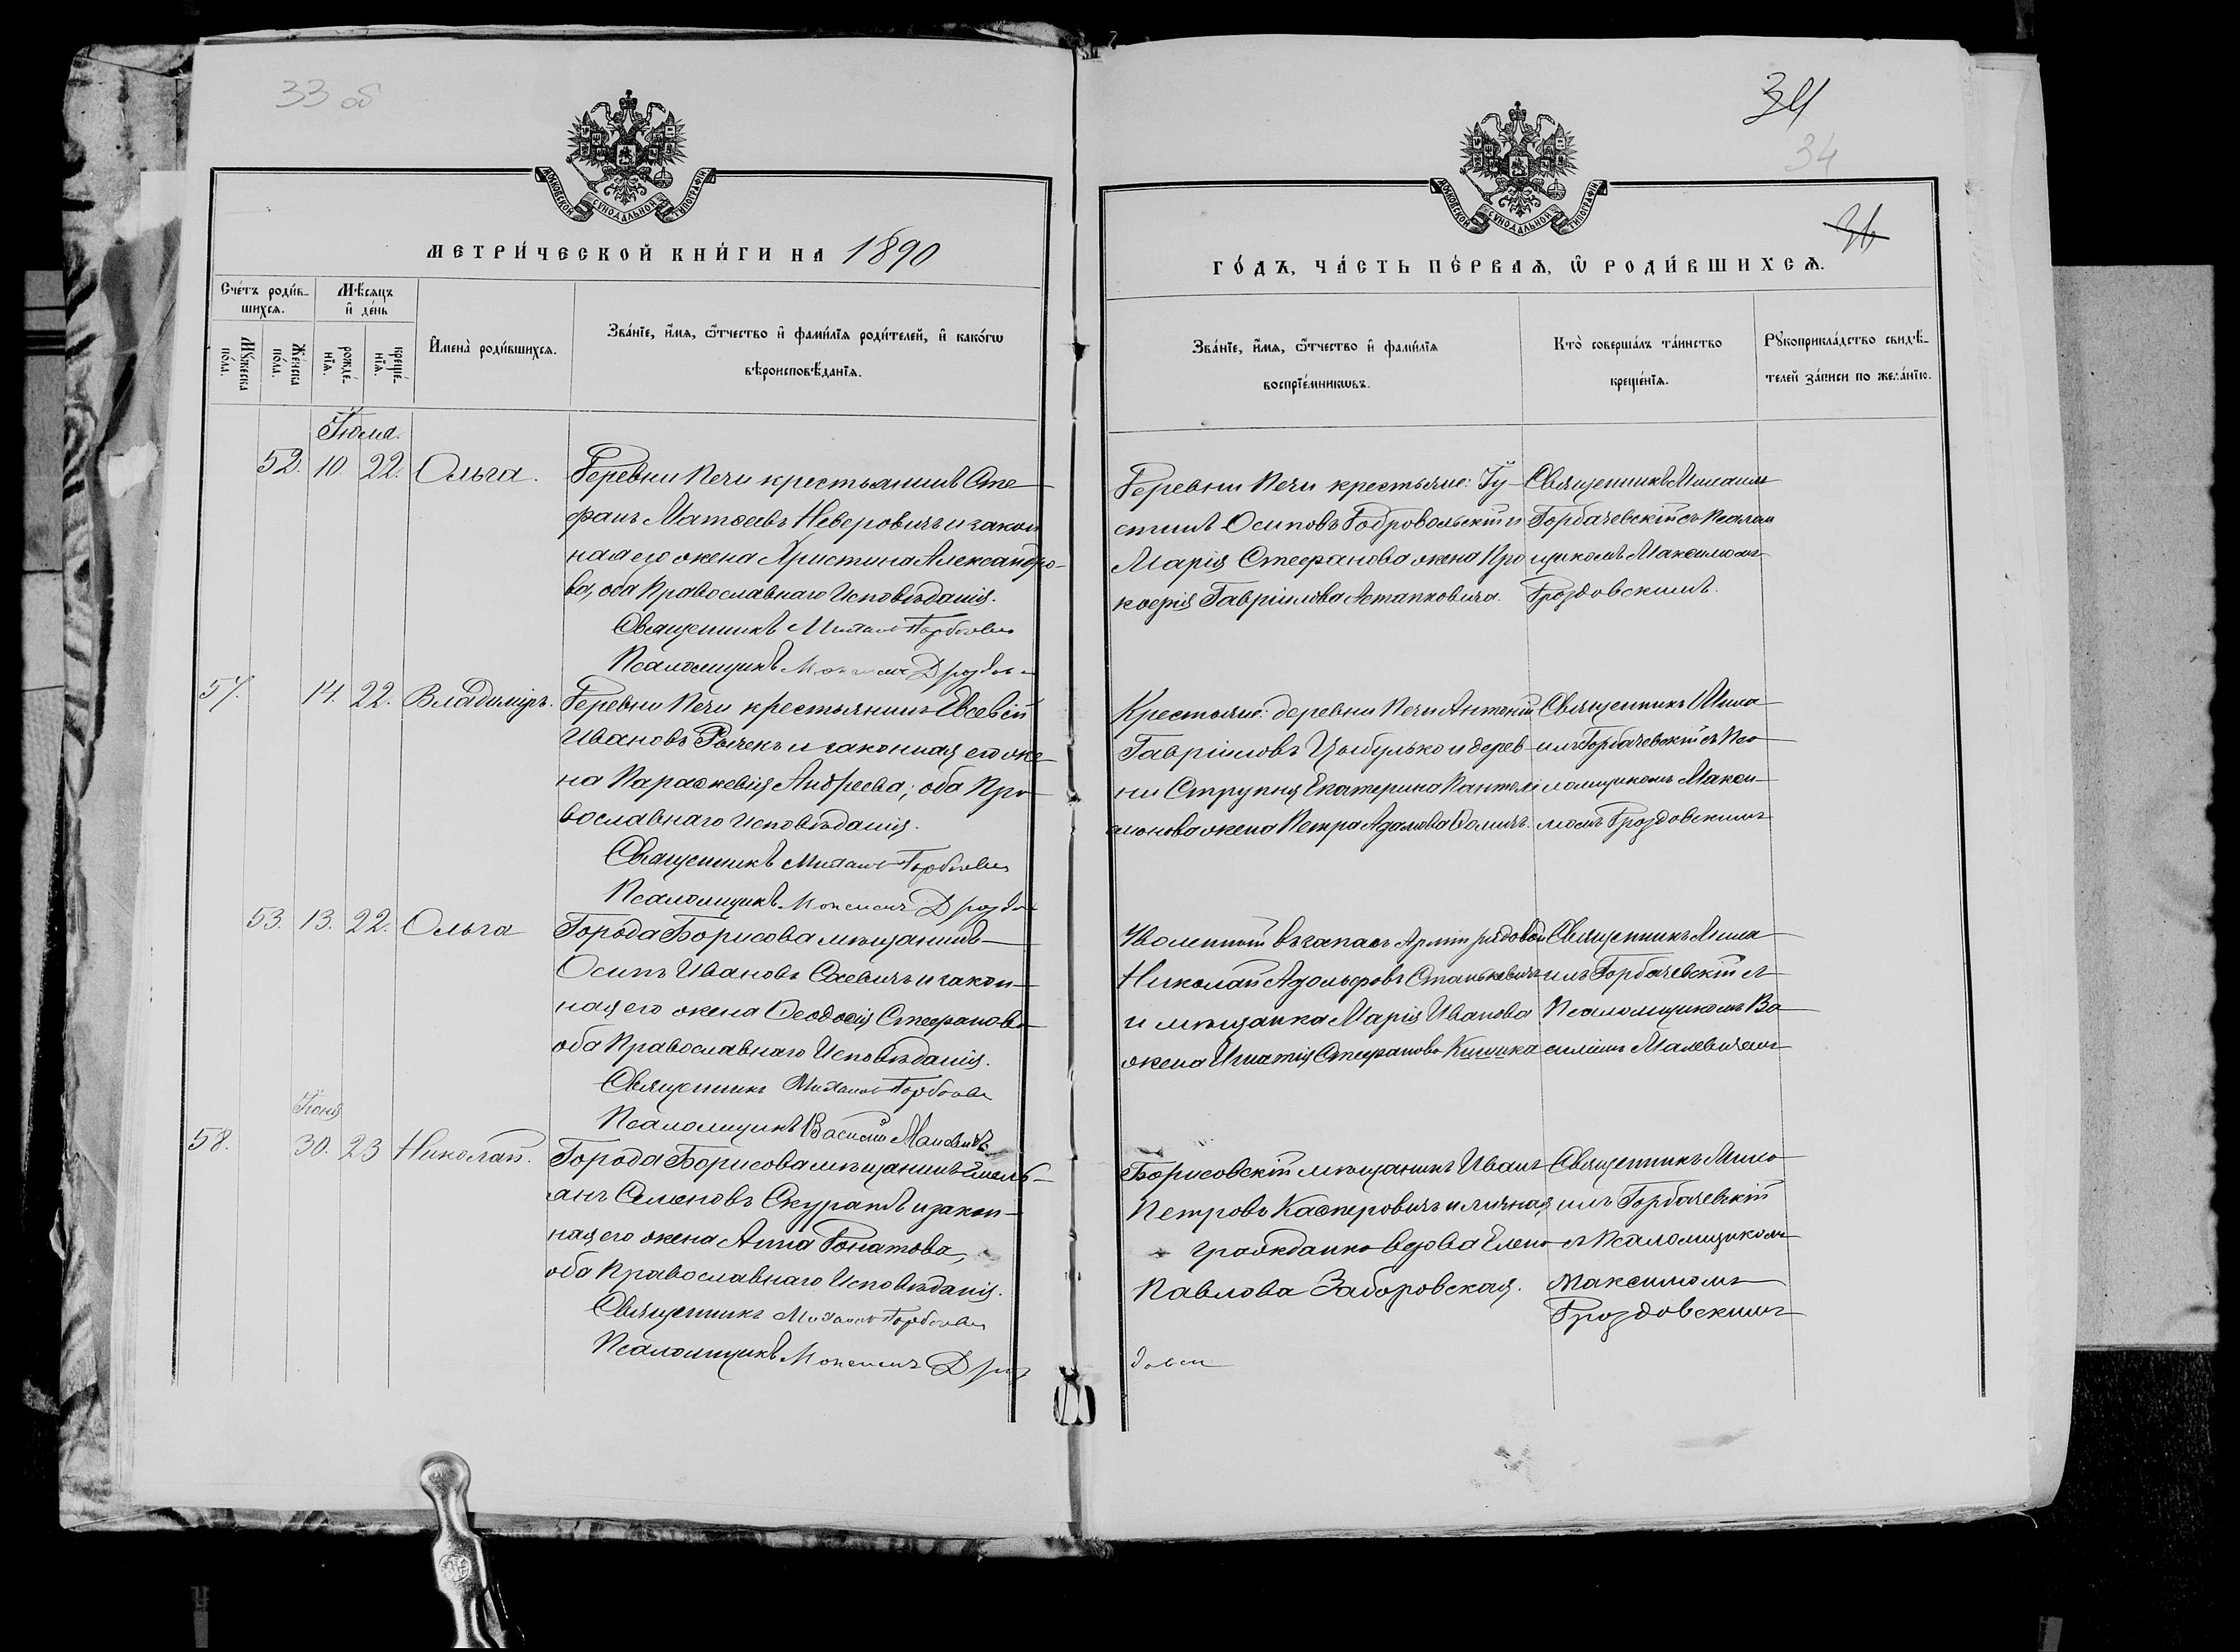 33 об
МОСКОВСКОЙ СѴНОДАЛЬНОЙ ТИПОГРАФІИ
МЕТРИ́ЧЕСКОЙ КНИ́ГИ НА 1890
Сче́тъ роди́в-
шихсѧ.
Мѣ́сѧцъ
и҆ де́нь
Мꙋ́жеска
по́ла.
Же́нска
по́ла.
рожде́-
нїѧ.
креще́-
нїѧ.
И҆мена̀ роди́вшихсѧ.
Зва́нїе, и҆́мѧ, ѻ҆́тчество и҆ фами́лїѧ роди́телей, и҆ како́гѡ
вѣроисповѣ́данїѧ.
Іюля.
52. 10. 22. Ольга.
Деревни Печи крестьянинъ Сте
фанъ Матѳеевъ Неверовичъ и закон
ная его жена Христина Александро-
ва, оба Православнаго Исповѣданія.
Священникъ Михаилъ Горбачевс
Псаломщикъ Максимъ Дроздов
57. 14. 22. Владиміръ.
Деревни Печи крестьянинъ Евсевій
Ивановъ Рычекъ и законная его же-
на Параскевія Андреева; оба Пра-
вославнаго Исповѣданія.
Священникъ Михаилъ Горбачевс
Псаломщикъ Максимъ Дроздов
53. 13. 22. Ольга
Города Борисова мѣщанинъ
Осипъ Ивановъ Саевичъ и закон-
ная его жена Ѳеодосія Стефанова
оба Православнаго Исповѣданія.
Священникъ Михаилъ Горбачевс
Псаломщикъ Василій Малевичъ
Іюня
58. 30. 23 Николай.
Города Борисова мѣщанинъ Емель-
анъ Семеновъ Скуратъ и закон-
ная его жена Анна Донатова,
оба Православнаго Исповѣданія.
Священникъ Михаилъ Горбачевс
Псаломщикъ Максимъ Дроз
34
34
МОСКОВСКОЙ СѴНОДАЛЬНОЙ ТИПОГРАФІИ
ГО́ДЪ, ЧА́СТЬ ПЕ́РВАѦ, Ѡ҆ РОДИ́ВШИХСѦ.
Зва́нїе, и҆́мѧ, ѻ҆́тчество и҆ фами́лїѧ
воспрїе́мникѡвъ.
Кто̀ соверша́лъ та́инство
креще́нїѧ.
Рꙋкоприкла́дство свидѣ́-
телей за́писи по жела́нїю.
Деревни Печи крестьяне: Іу-
стинъ Осиповъ Добровольскій и
Марія Стефанова жена Про
кофія Гавріилова Астапковича.
Священникъ Михаилъ
Горбачевскій съ Псалом
щикомъ Максимомъ
Дроздовскимъ.
Крестьяне: деревни Печи Антоній
Гавріиловъ Цыбулько и дерев
ни Струпня Екатерина Пантеле
имонова жена Петра Адамова Ѳомичъ.
Священникъ Миха
илъ Горбачевскій съ Пса
ломщикомъ Макси
момъ Дроздовскимъ
Уволенный въ запасъ Арміи рядовой
Николай Адольфовъ Станкевичъ
и мѣщанка Марія Иванова
жена Игнатія Стефанова Кишка
Священникъ Миха
илъ Горбачевскій съ
Псаломщикомъ Ва
силіемъ Малевичемъ
Борисовскій мѣщанинъ Иванъ
Петровъ Касперовичъ и личная
гражданка вдова Елена
Павлова Заборовская.
Священникъ Миха
илъ Горбачевскій
съ Псаломщикомъ
Максимомъ
Дроздовскимъ
довск